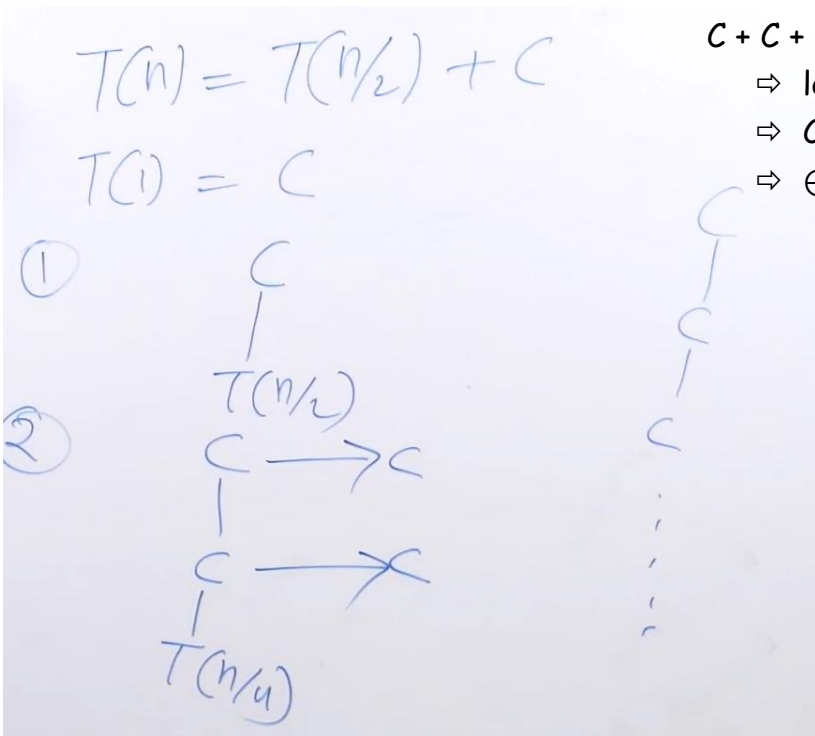 T(n) = T(n/2) + C
T(1) = C
①
C
T(n/2)
②
C → C
C → C
T(n/4)
C + C +
⇨
⇨
⇨
C
C
C